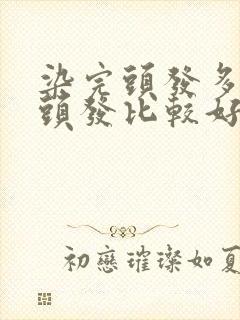 染完頭發多
頭發比較好
初戀璀璨如夏